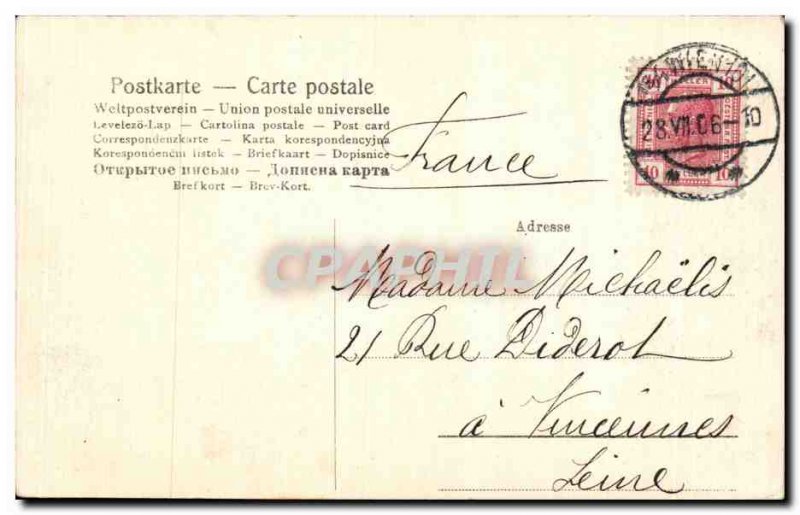 Postkarte — Carte postale
Weltpostverein — Union postale universelle
Levelező-Lap — Cartolina postale — Post card
Correspondenzkarte — Karta korespondencyjna
Korespondenční lístek — Briefkaart — Dopisnice
Открытое письмо — Дописна карта
Brefkort — Brev-Kort.
France
28.VII.06-10
10 10
Adresse
CPAPHIL
Madame Michaëlis
21 Rue Diderot
à Vincennes
Seine